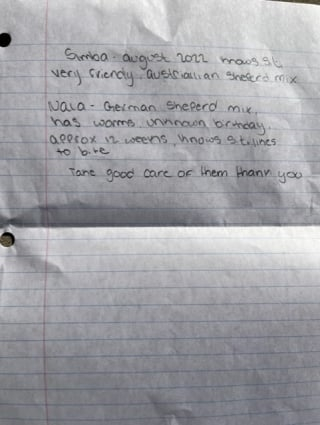 Simba - august 2022 knows sit
very friendy, austrailian sheperd mix
Nala - German sheperd mix,
has worms, unknown birthday.
approx 12 weeks, knows sit, likes
to bite
Take good care of them thank you